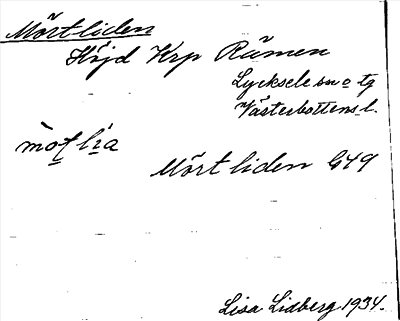 Mörtliden
Höjd Krp Råmen
Lycksele sn o tg
Västerbottens l.
Mörtliden G49
Lisa Lidberg 1934.